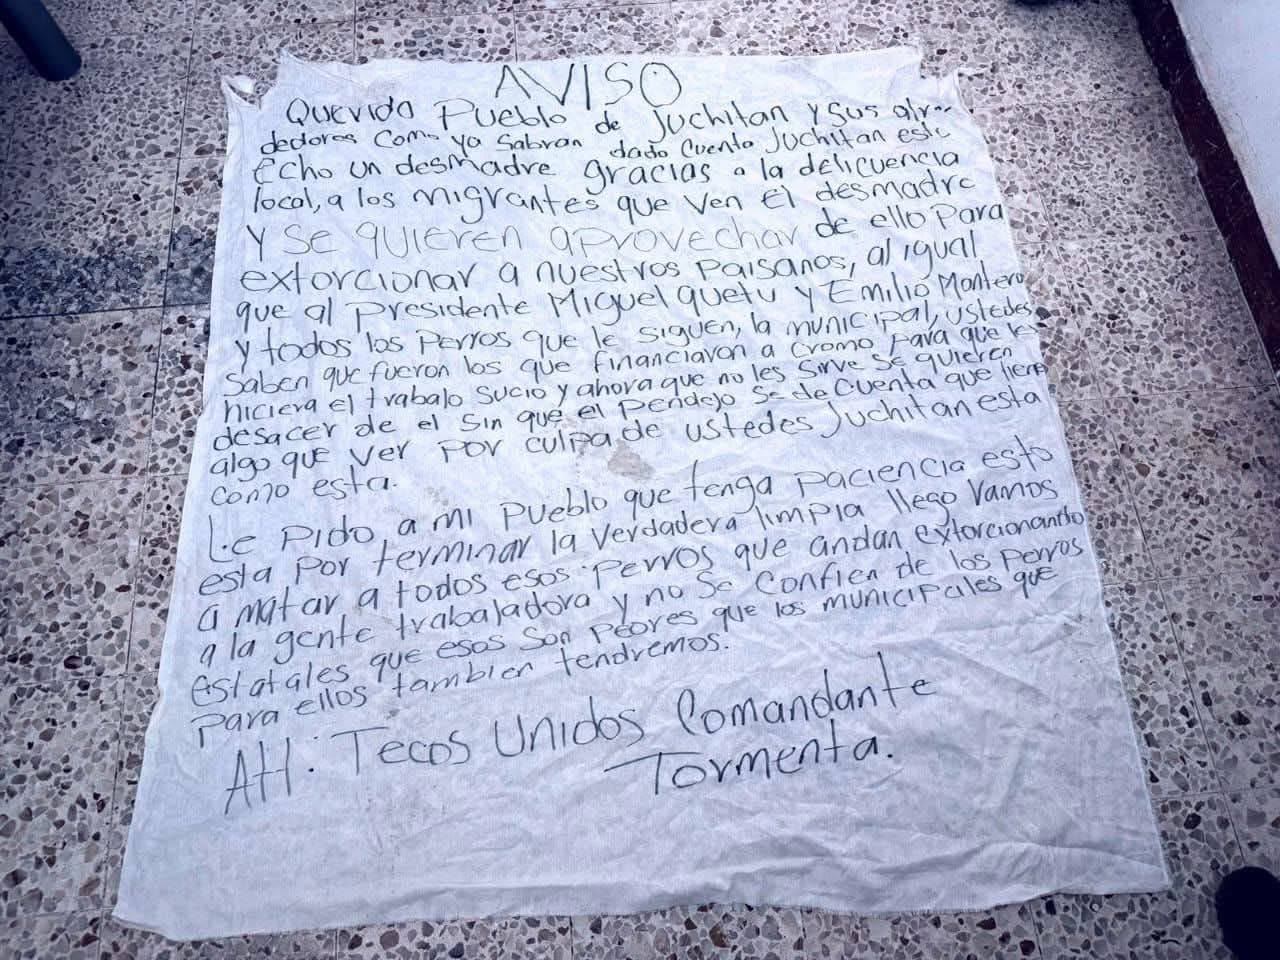 AVISO
Querido Pueblo de Juchitan y sus alre-
dedores Como ya sabran dado Cuenta Juchitan esta
Echo un desmadre gracias a la delicuencia
local, a los migrantes que ven El desmadre
Y SE QUIEREN aprovechar de ello Para
extorcionar a nuestros Paisanos, al igual
que al Presidente Miguel quetu y Emilio Montero
y todos los Perros que le siguen, la municipal, ustedes
saben que fueron los que financiaron a cromo Para que le
hiciera el trabalo Sucio y ahora que no les Sirve Se quieren
desacer de el Sin que el Pendejo Se de Cuenta que tiene
algo que ver por culpa de ustedes Juchitan esta
como esta.
Le Pido a mi Pueblo que tenga paciencia esto
esta por terminar la verdadera limpia llego Vamos
a matar a todos esos Perros que andan extorcionando
a la gente trabajadora y no Se Confien de los Perros
Estatales que esos son Peores que los municipales que
Para ellos tambien tendremos.
Att: Tecos Unidos Comandante
Tormenta.